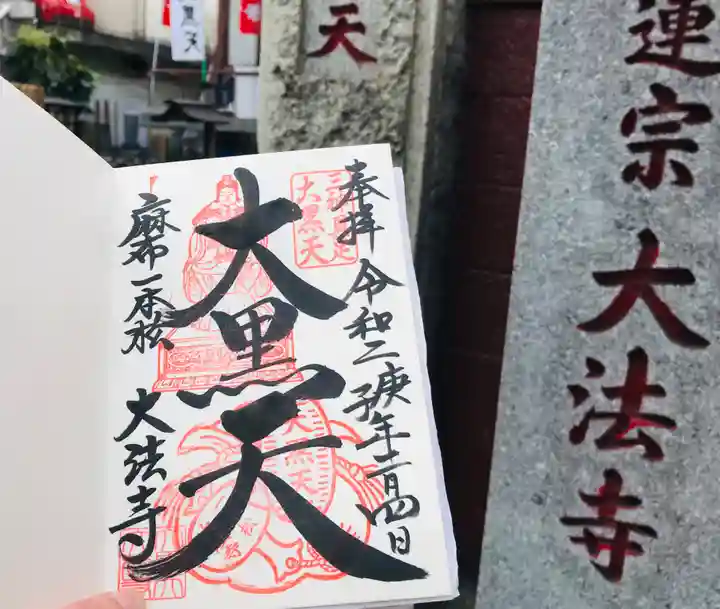 黒天
天
連宗 大法寺
奉拝 令和二庚子年二月四日
大黒天
大黒天
麻布一本松 大法寺
大黒天